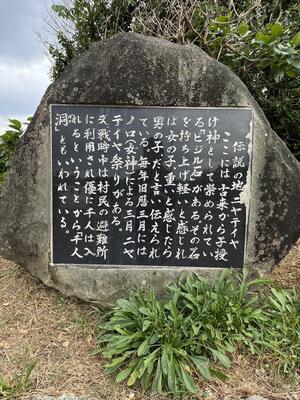 伝説の地ニヤティヤ
ここには古来から子授
け神として崇められてい
る「ビジル石」がある。その石
を持ち上げ軽いと感じれ
ば女の子、重いと感じたら
男の子だと言い伝えられ
ている。毎年旧暦三月には
ノロ(女神)による三月ニヤ
ティヤ祭りがある。
又戦時中は村民の避難所
に利用され優に千人は入
れるということから「千人
洞」ともいわれている。